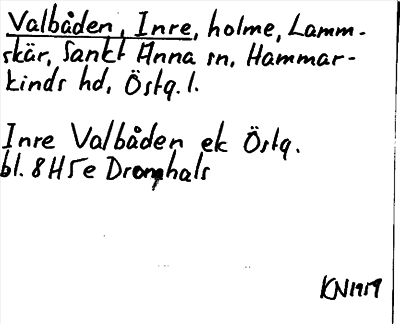 Valbåden, Inre, holme, Lamm-
skär, Sankt Anna sn, Hammar-
kinds hd, Östg. l.
Inre Valbåden ek Östg.
bl. 8H5e Dromhals
KN1959